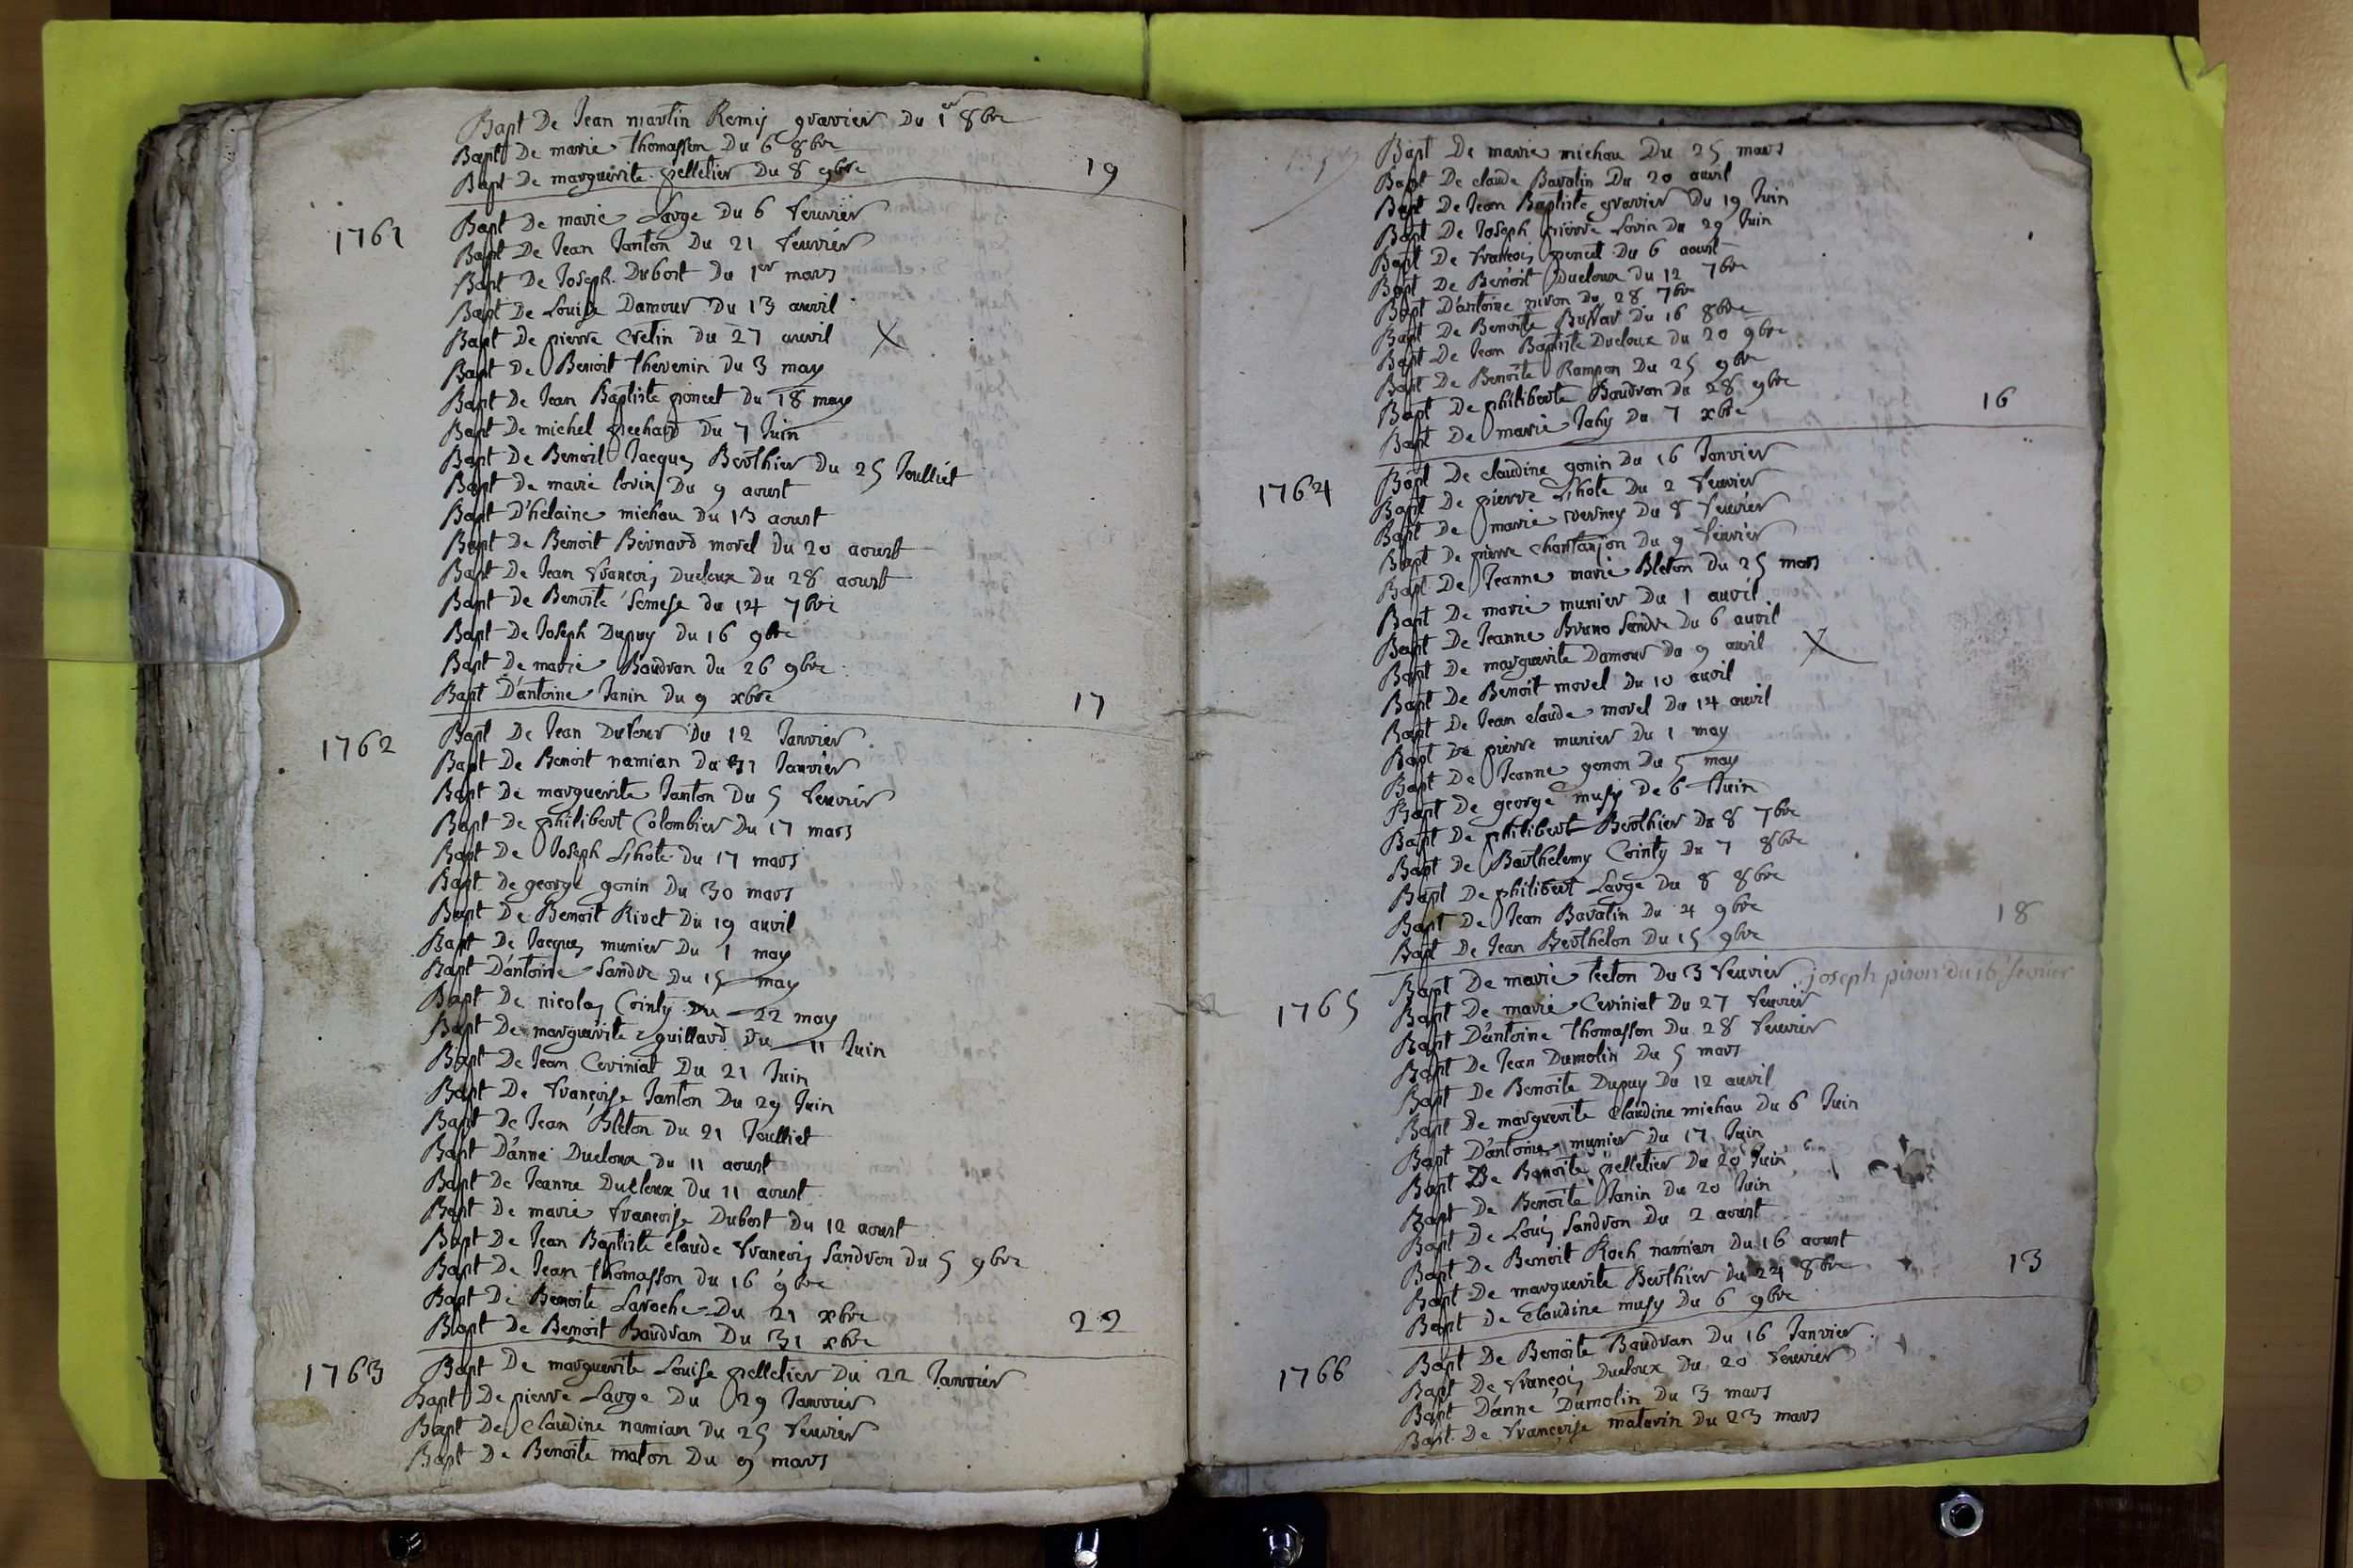 Bapt De Jean martin Remy gravier Du 1er 8bre
Bapt De marie thomasson Du 6 8bre
Bapt De marguerite pelletier Du 8 9bre
19
1761
Bapt De marie Large Du 6 feuvrier
Bapt De Jean Janton Du 21 feuvrier
Bapt De Joseph Dubost Du 1er mars
Bapt De Louise Damour Du 13 avril
Bapt De pierre Cretin du 27 avril X
Bapt De Benoit thevenin du 3 may
Bapt De Jean Baptiste poncet Du 18 may
Bapt De michel pechard Du 7 Juin
Bapt De Benoit Jacques Berthier Du 25 Joulliet
Bapt De marie lorin Du 9 aoust
Bapt D'helaine michau Du 13 aoust
Bapt De Benoit Bernard morel Du 20 aoust
Bapt De Jean francois Ducloux Du 28 aoust
Bapt De Benoite Semese du 14 7bre
Bapt De Joseph Dupuy Du 16 9bre
Bapt De marie Baudran du 26 9bre
Bapt D'antoine Janin Du 9 xbre
17
1762
Bapt De Jean Dufour Du 12 Janvier
Bapt De Benoit namian Du 31 Janvier
Bapt De marguerite Janton Du 5 feuvrier
Bapt De philibert Colombier Du 17 mars
Bapt De Joseph L'hote du 17 mars
Bapt De george gonin Du 30 mars
Bapt De Benoit Rivet Du 19 avril
Bapt De Jacques munier Du 1 may
Bapt D'antoine Sandre Du 15 may
Bapt De nicolas Cointy Du 22 may
Bapt De marguerite guillard Du 11 Juin
Bapt De Jean Ceviniat Du 21 Juin
Bapt De françoise Janton Du 29 Juin
Bapt De Jean Bleton Du 21 Joulliet
Bapt D'anne Ducloux Du 11 aoust
Bapt De Jeanne Ducloux Du 11 aoust
Bapt De marie francoise Dubost Du 12 aoust
Bapt De Jean Baptiste claude francois Sandron du 5 9bre
Bapt De Jean thomasson du 16 9bre
Bapt De Benoite Laroche Du 21 xbre
Bapt De Benoit Baudran Du 31 xbre
22
1763
Bapt De marguerite Louise pelletier Du 22 Janvier
Bapt De pierre Large Du 29 Janvier
Bapt De Claudine namian Du 25 feuvrier
Bapt De Benoite maton Du 9 mars
Bapt De marie michau Du 25 mars
Bapt De claude Bavatin Du 20 avril
Bapt De Jean Baptiste gravier Du 19 Juin
Bapt De Joseph pierre Lorin Du 29 Juin
Bapt De francois poncet Du 6 aoust
Bapt De Benoit Ducloux Du 12 7bre
Bapt D'antoine piron Du 28 7bre
Bapt De Benoite Du 16 8bre
Bapt De Jean Baptiste Ducloux Du 20 9bre
Bapt De Benoite Rampon Du 25 9bre
Bapt De philiberte Baudran Du 28 9bre
Bapt De marie Jahy Du 7 xbre
16
1764
Bapt De claudine gonin Du 16 Janvier
Bapt De pierre L'hote Du 2 feuvrier
Bapt De marie verney Du 8 feuvrier
Bapt De pierre Chantanjon Du 9 feuvrier
Bapt De Jeanne marie Bleton Du 25 mars
Bapt De marie munier Du 1 avril
Bapt De Jeanne Bruno Sandre Du 6 avril
Bapt De marguerite Damour Du 9 avril X
Bapt De Benoit morel Du 10 avril
Bapt De Jean claude morel Du 14 avril
Bapt De pierre munier Du 1 may
Bapt De Jeanne gonon Du 5 may
Bapt De george musy De 6 Juin
Bapt De philibert Berthier Du 8 7bre
Bapt De Barthelemy Cointy Du 7 8bre
Bapt De philibert Large Du 8 8bre
Bapt De Jean Bavatin Du 4 9bre
Bapt De Jean Berthelon Du 15 9bre
18
1765
Bapt De marie teton Du 3 feuvrier joseph piron du 16 fevrier
Bapt De marie Ceviniat Du 27 feuvrier
Bapt D'antoine thomasson Du 28 feuvrier
Bapt De Jean Dumolin Du 5 mars
Bapt De Benoite Dupuy Du 12 avril
Bapt De marguerite Claudine michau Du 6 Juin
Bapt D'antoine munier Du 17 Juin
Bapt De Benoite pelletier Du 20 Juin
Bapt De Benoite Janin Du 20 Juin
Bapt De Louis Sandron Du 2 aoust
Bapt De Benoit Roch namian Du 16 aoust
Bapt De marguerite Berthier Du 24 8bre
Bapt De Claudine musy Du 6 9bre
13
1766
Bapt De Benoite Baudran Du 16 Janvier
Bapt De francois Ducloux Du 20 feuvrier
Bapt D'anne Dumolin Du 3 mars
Bapt De francoise matavin Du 23 mars